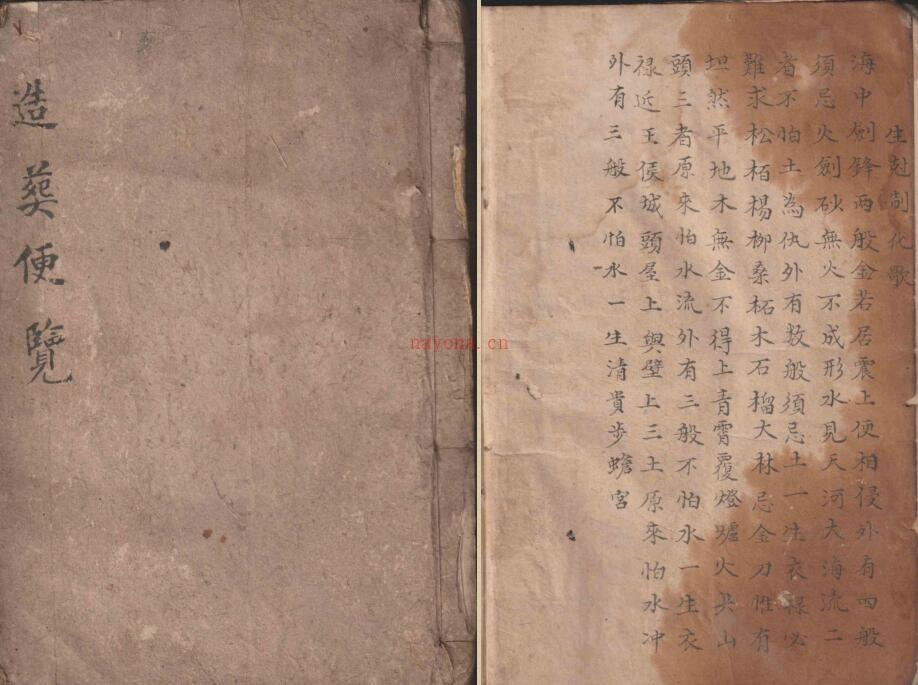 造葬便覽
生尅制化歌
海中劍鋒两般金若居震上便相侵外有四般
須忌火劍砂無火不成形水見天河大海流二
者不怕土為仇外有数般須忌土一生衣祿必
難求松栢楊柳桑柘木石榴大林忌金刀惟有
坦然平地木無金不得上青霄覆燈爐火共山
頭三者原來怕水流外有三般不怕水一生衣
禄近王侯城頭屋上與壁上三土原來怕水冲
外有三般不怕水一生清貴步蟾宮
nayona.cn